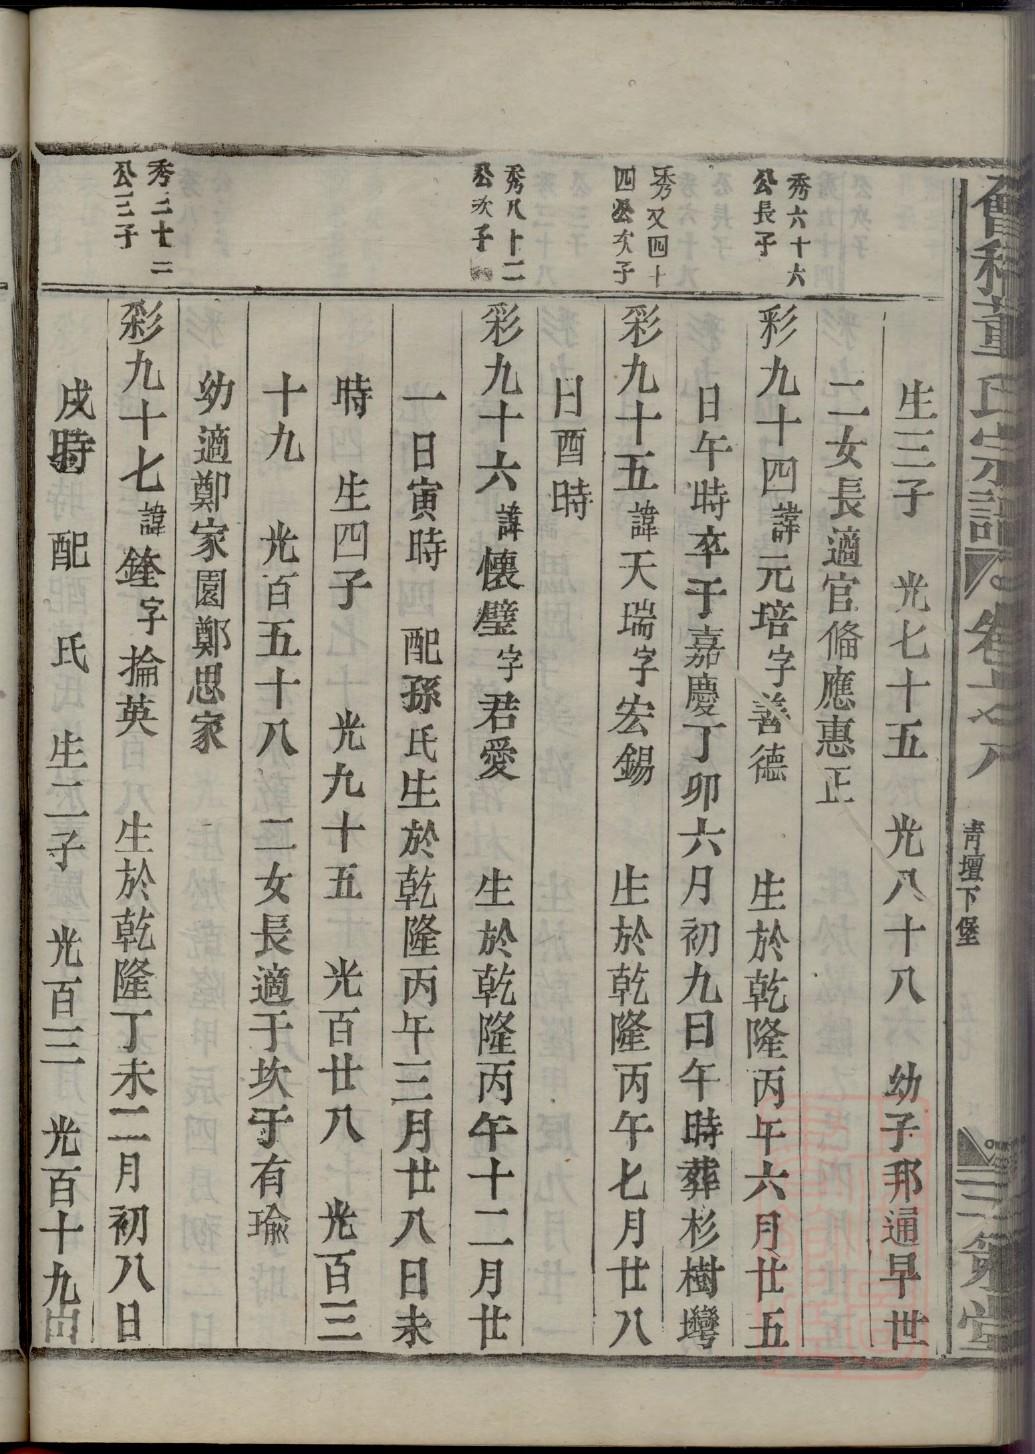 會稽董氏宗譜 卷
青壇下堡
三策堂
生三子 光七十五 光八十八 幼子邦通早世
二女長適官俻應惠正
秀六十六
公長子
彩九十四諱元培字善德 生於乾隆丙午六月廿五
日午時卒于嘉慶丁卯六月初九日午時葬杉樹灣
秀又四十
四公次子
彩九十五諱天瑞字宏錫 生於乾隆丙午七月廿八
日酉時
秀八十二
公次子
彩九十六諱懷璧字君愛 生於乾隆丙午十二月廿
一日寅時 配孫氏生於乾隆丙午三月廿八日未
時 生四子 光九十五 光百廿八 光百三
十九 光百五十八 二女長適于坎于有瑜
幼適鄭家園鄭思家
秀二十二
公三子
彩九十七諱銓字掄英 生於乾隆丁未二月初八日
戌時 配 氏 生二子 光百三 光百十九